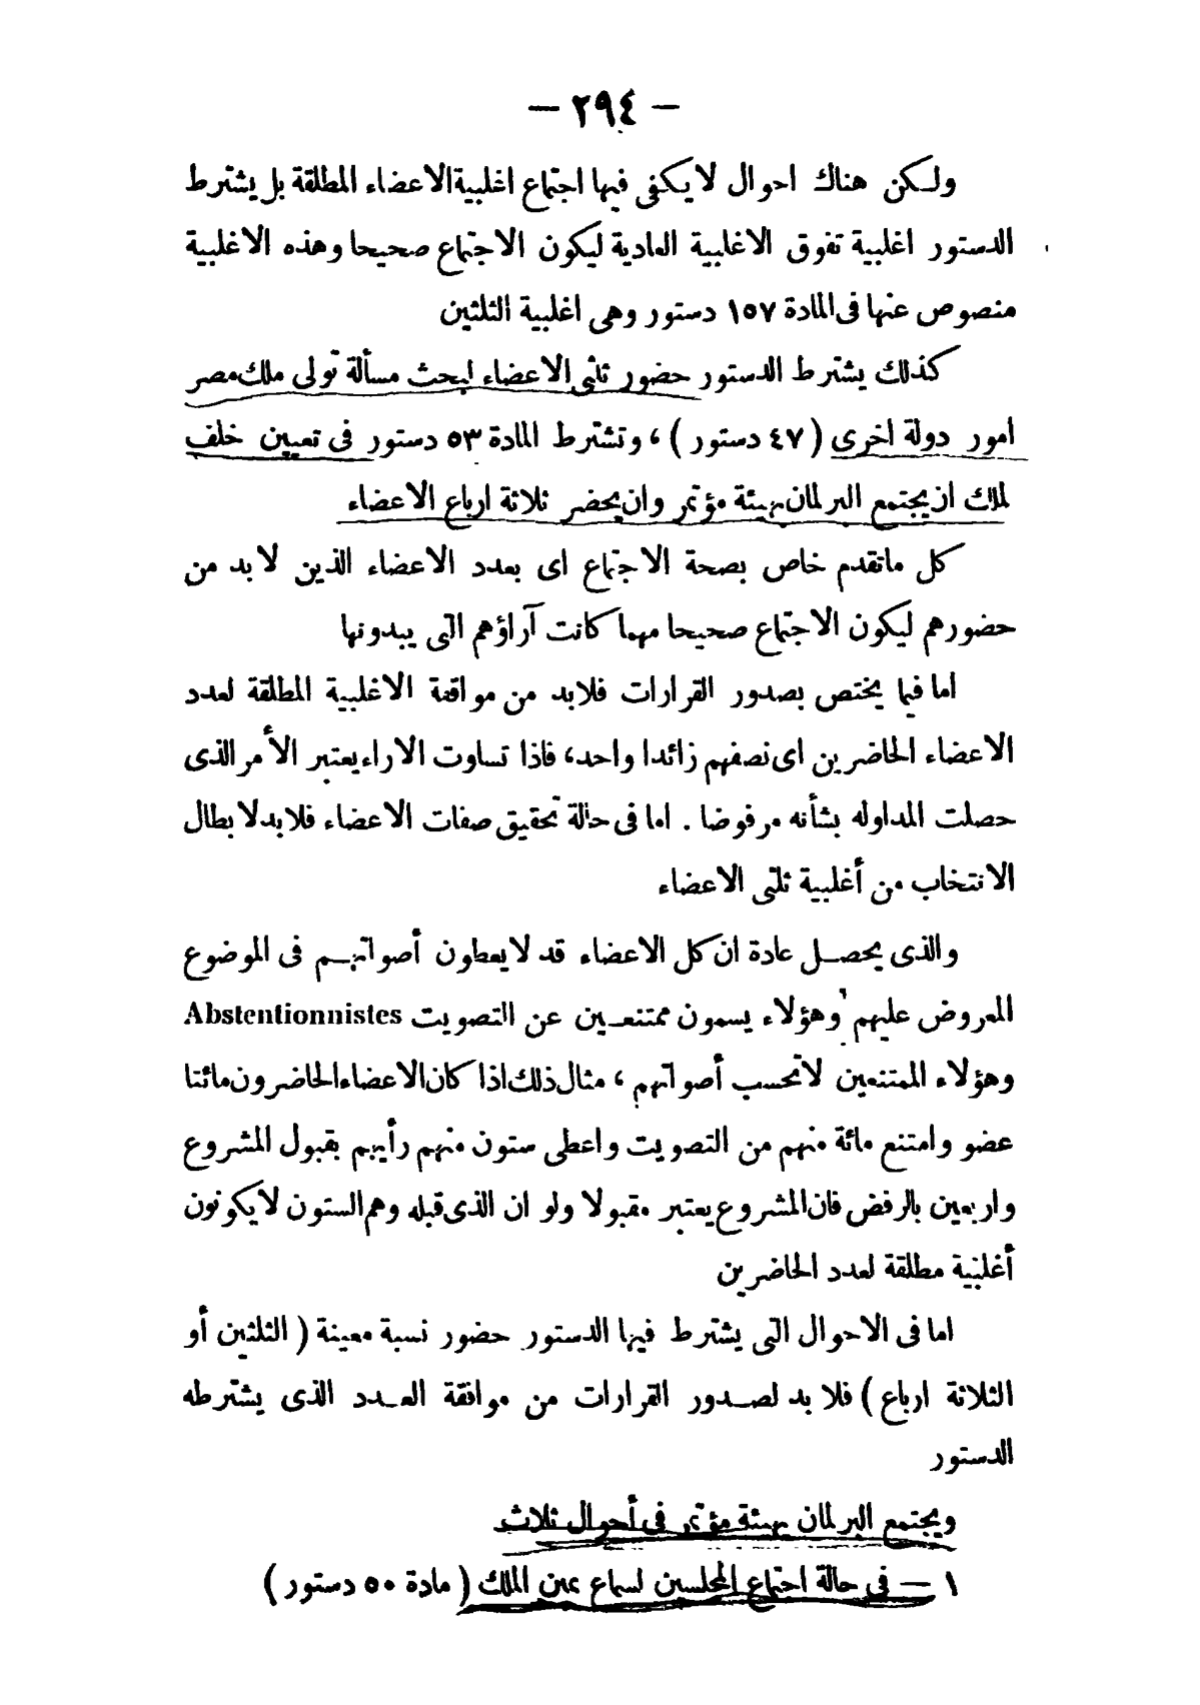 — ٢٩٤ —
ولكن هناك احوال لا يكفى فيها اجتماع اغلبية الاعضاء المطلقة بل يشترط
الدستور اغلبية تفوق الاغلبية العادية ليكون الاجتماع صحيحا وهذه الاغلبية
منصوص عنها فى المادة ١٥٧ دستور وهى اغلبية الثلثين
كذلك يشترط الدستور حضور ثلثى الاعضاء لبحث مسألة تولى ملك مصر
امور دولة اخرى ( ٤٧ دستور ) ، وتشترط المادة ٥٣ دستور فى تعيين خلف
لملك ان يجتمع البرلمان بهيئة مؤتمر وان يحضر ثلاثة ارباع الاعضاء
كل ماتقدم خاص بصحة الاجتماع اى بعدد الاعضاء الذين لابد من
حضورهم ليكون الاجتماع صحيحا مهما كانت آراؤهم التى يبدونها
اما فيما يختص بصدور القرارات فلابد من موافقة الاغلبية المطلقة لعدد
الاعضاء الحاضرين اى نصفهم زائدا واحد، فاذا تساوت الاراء يعتبر الأمر الذى
حصلت المداوله بشأنه مرفوضا . اما فى حالة تحقيق صفات الاعضاء فلابد لابطال
الانتخاب من أغلبية ثلثى الاعضاء
والذى يحصل عادة ان كل الاعضاء قد لا يعطون أصواتهم فى الموضوع
المعروض عليهم وهؤلاء يسمون ممتنعين عن التصويت Abstentionnistes
وهؤلاء الممتنعين لا تحسب أصواتهم ، مثال ذلك اذا كان الاعضاء الحاضرون مائتا
عضو وامتنع مائة منهم من التصويت واعطى ستون منهم رأيهم بقبول المشروع
واربعين بالرفض فان المشروع يعتبر مقبولا ولو ان الذى قبله وهم الستون لا يكونون
أغلبية مطلقة لعدد الحاضرين
اما فى الاحوال التى يشترط فيها الدستور حضور نسبة معينة ( الثلثين أو
الثلاثة ارباع ) فلا بد لصدور القرارات من موافقة العدد الذى يشترطه
الدستور
ويجتمع البرلمان بهيئة مؤتمر فى أحوال ثلاث
١ — فى حالة اجتماع المجلسين لسماع يمين الملك ( مادة ٥٠ دستور )